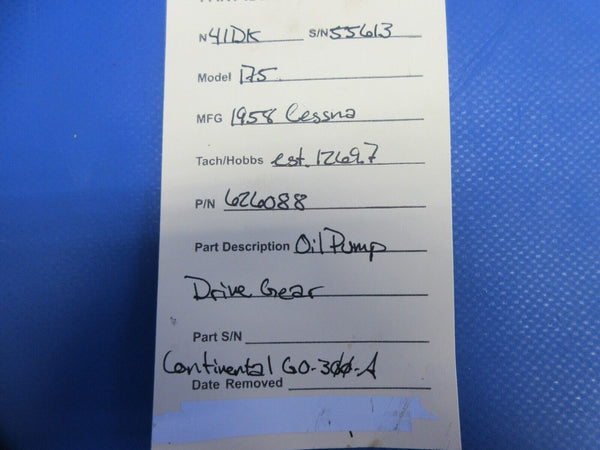 N 41DK S/N 55613
Model 175
MFG 1958 Cessna
Tach/Hobbs est. 1269.7
P/N 626088
Part Description Oil Pump
Drive Gear
Part S/N
Continental GO-300-A
Date Removed